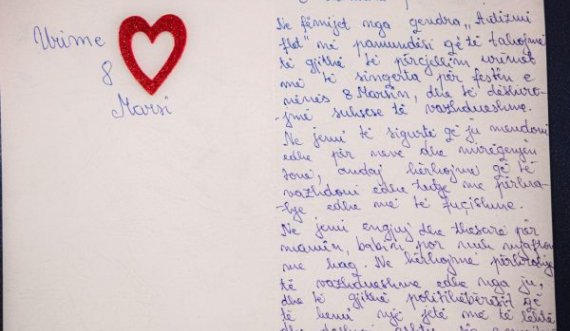 Urime
8
Marsi
Ne fëmijet nga qendra "Autizmi
flet" në pamundësi që të takojmë
të gjithë të përcjellim urimet
më të singerta për festën e
nënës 8 Marsin, dhe të dëshiro-
jmë suksese të vazhdueshme.
Ne jemi të sigurtë që ju mendoni
edhe për neve dhe mirëqenjen
tonë, andaj kërkojmë që të
vazhdoni edhe tutje me përkra-
hje edhe më të fuqishme.
Ne jemi engjuj dhe thesare për
mamin, babin por nuk mjafton
me kaq. Ne kërkojmë përkrahje
të vazhdueshme edhe nga ju,
dhe të gjithë politikëbërësit që
të kemi një jetë më të lehtë